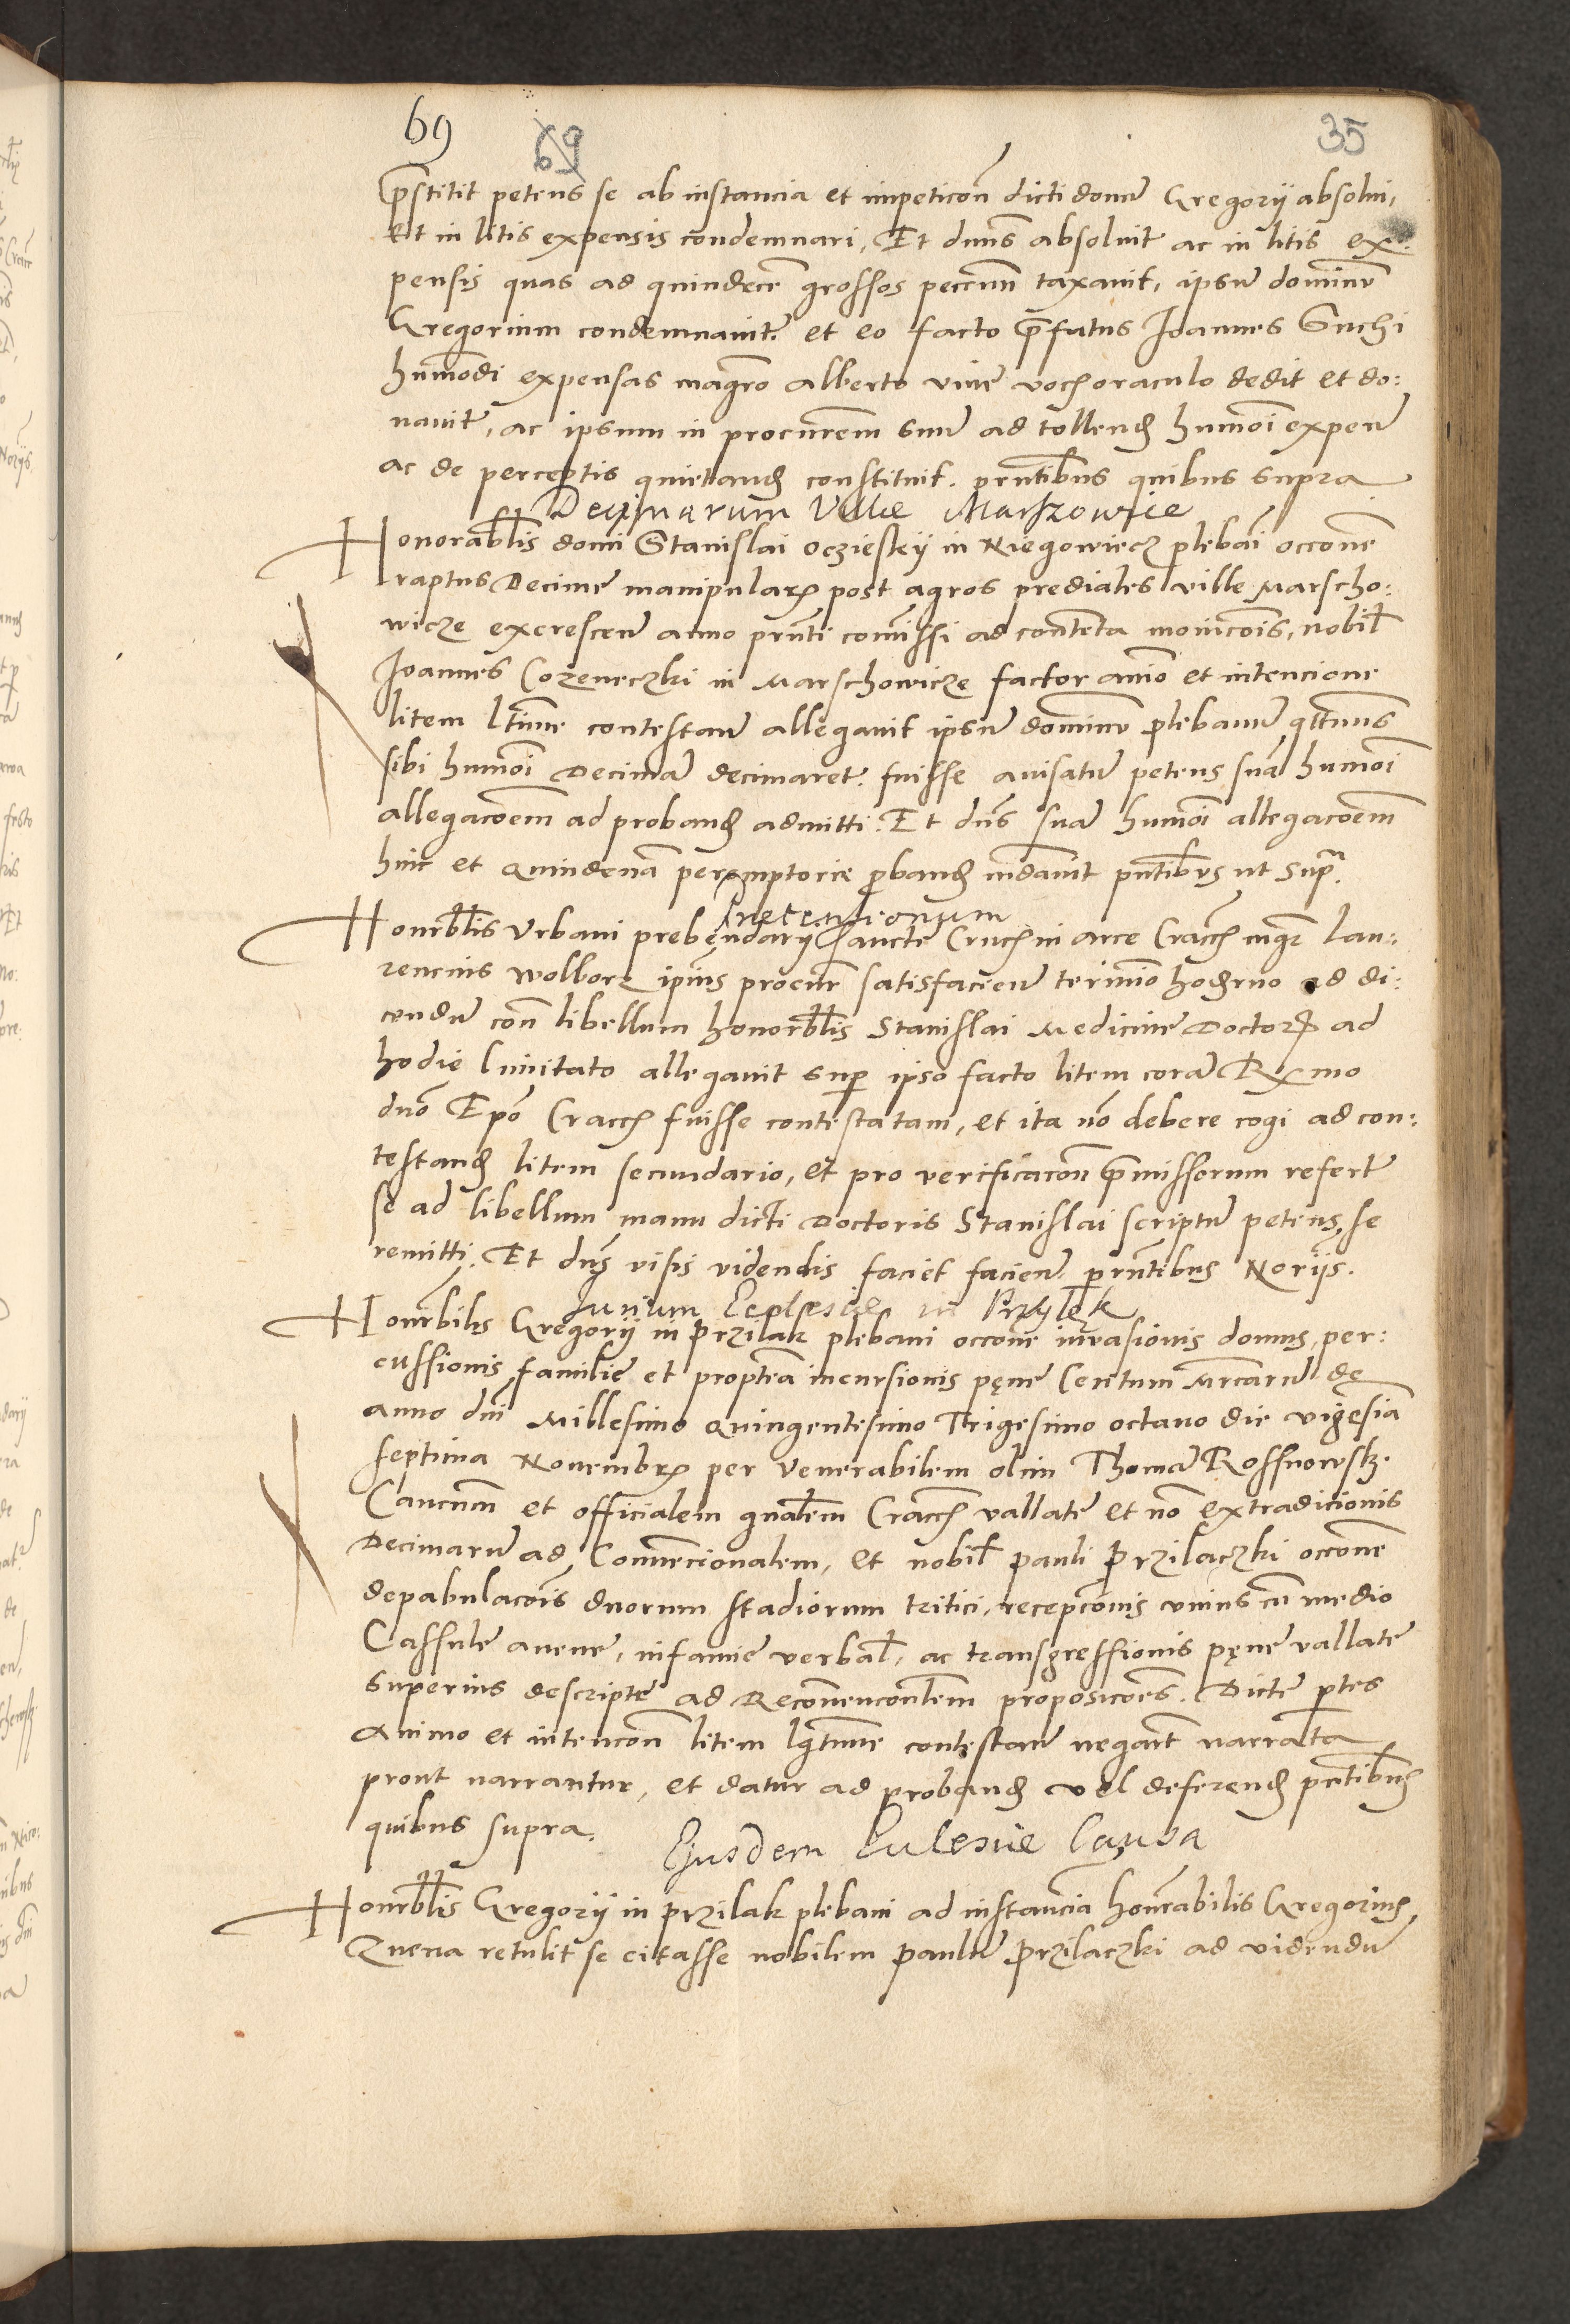 69 69 35
prestitit petens se ab instancia et impeticōn dicti domĩ Gregorij absolui,
Et in litis expensis condemnari, Et dnus absoluit ac in litis ex-
pensis quas ad quindecē grossos pecūn taxauit, ipsū dominū
Gregorium condemnauit. et eo facto prefatus Joannes Suchi
hūmōdi expensas magro alberto viue vocis oraculo dedit et do:
nauit, ac ipsum in procurem suū ad tollend hūmōi expen
ac de perceptis quietand constituit. prntibus quibus supra
Decimarum Ville Marszowice
Honorablis domi Stanislai oczieskij in Niegowiecz plebāi occone
raptus Decime manipularis post agros prediales ville Marscho:
wicze excrescen anno prnti comissi ad contenta monicōis, nobil
Joannes Cozeneczki in Marschowicze factor animo et intencione
litem ltime contestan allegauit ipsū dominū plebanū qtenus
sibi hūmōi Decimā decimaret. fuisse auisatū petens suā hūmōi
allegacōem ad proband admitti. Et dns suā hūmōi allegacōem
hinc et quindenā peremptorie proband mdauit pntibus ut supra.
Onorblis Vrbani prebendarij Sancte Crucis in arce Cracc mgr Lau:
rencius Wolborz ipius procur satisfacien termino hodierno ad di:
cendū con libellum honorblis Stanislai Medicine Doctoris ad
hodie limitato allegauit super ipso facto litem corā Rmo
dno Epo Cracc fuisse contestatam, et ita no debere cogi ad con:
testand litem secundario, et pro verificacōn premissorum refert
se ad libellum manu dicti Doctoris Stanislai scriptū petens se
remitti. Et dns visis videndis faciet facien. prntibus Norijs.
Jurium Ecclesiæ in Przylęk
Honorbilis Gregorij in Przilak plebani occone inuasionis domus, per:
cussionis familie et propterea incursionis pene Centum Mrcarū de
anno dni Millesimo Quingentesimo Trigesimo octauo die vigesia
septima Nouembris per Venerabilem olim Thomā Rossnowsk.
Canonum et officialem gnalem Cracc vallate et no extradicionis
Decimarū ad Conuencionalem, et nobil pauli Przilaczki occone
depabulacōis duorum stadiorum tritici, recepcionis vnius cū medio
Cassule auene, infamie verbal, ac transgressionis pene vallate
superius descripte ad Reconuenconlem proposicōes. Dicte ptes
Animo et intencōn litem lgtime contestan negārt narrata
prout narrantur, et datur ad proband vel deferend pntibus
quibus supra.
Ejusdem Ecclesiæ Causa
Honorblis Gregorij in Przilak plebani ad instancia honorabilis Gregorius
Quena retulit se citasse nobilem Paulū Przilaczki ad videndū